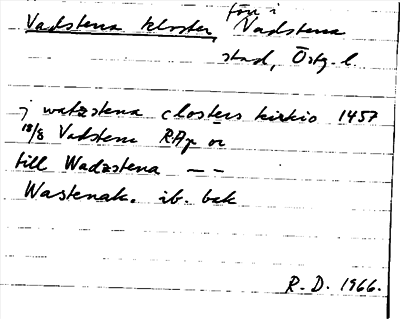 Vadstena kloster, förr i Vadstena
stad, Östg. l.
j watzstena closters kirkio 1457
18/8 Vadstena RAp or
till Wadzstena — —
Wastenak. ib. bak
R. D. 1966.